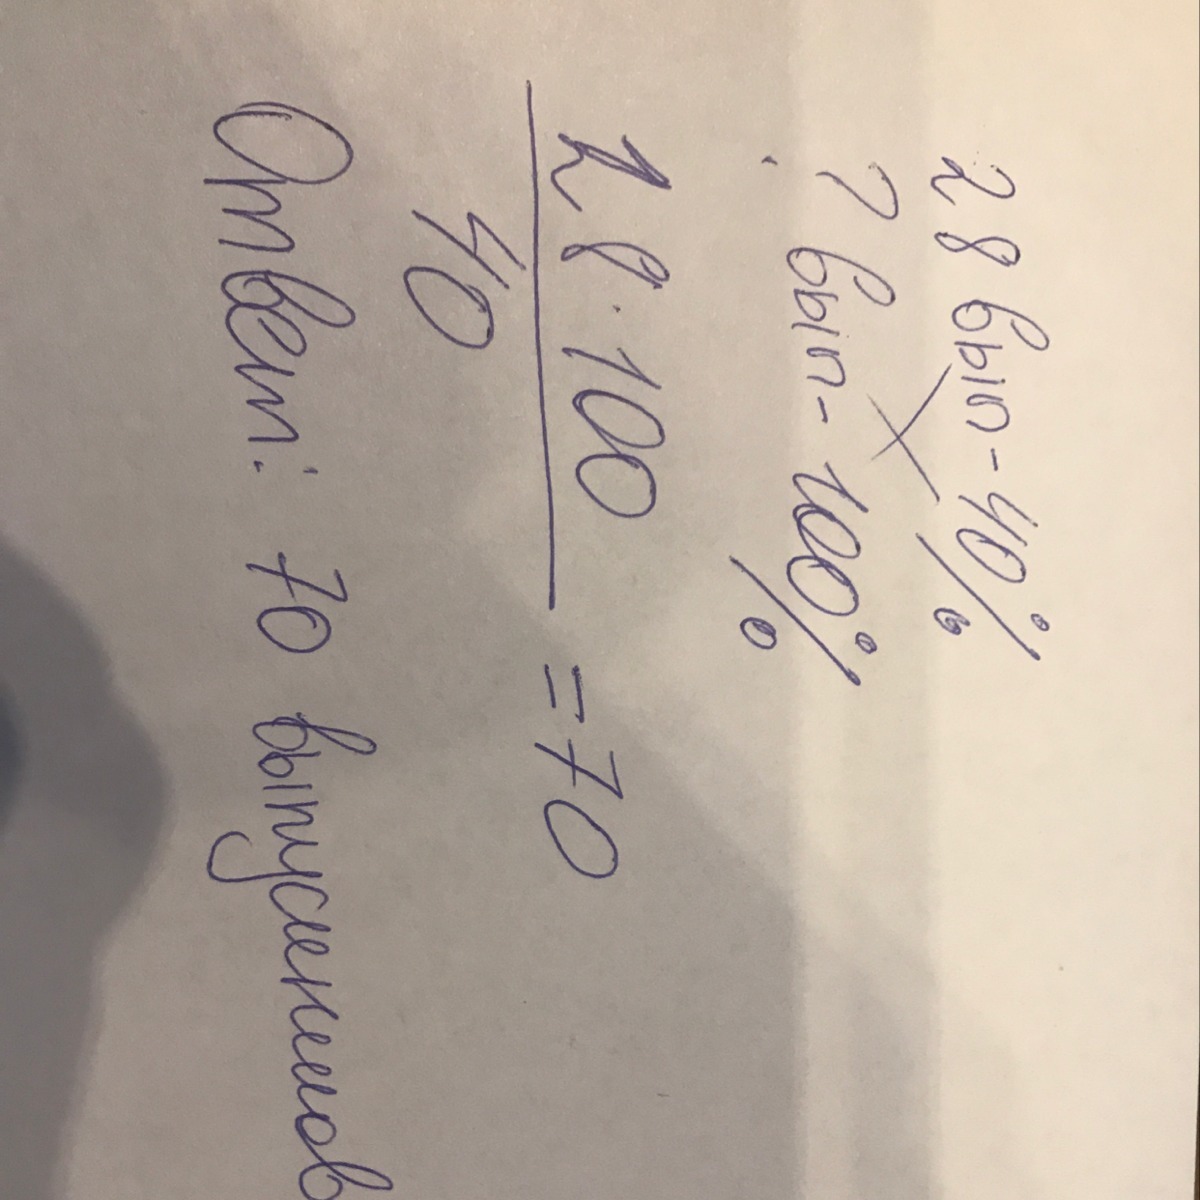 28 вып - 40%
? вып - 100%
28 · 100
40
= 70
Ответ: 70 выпускников